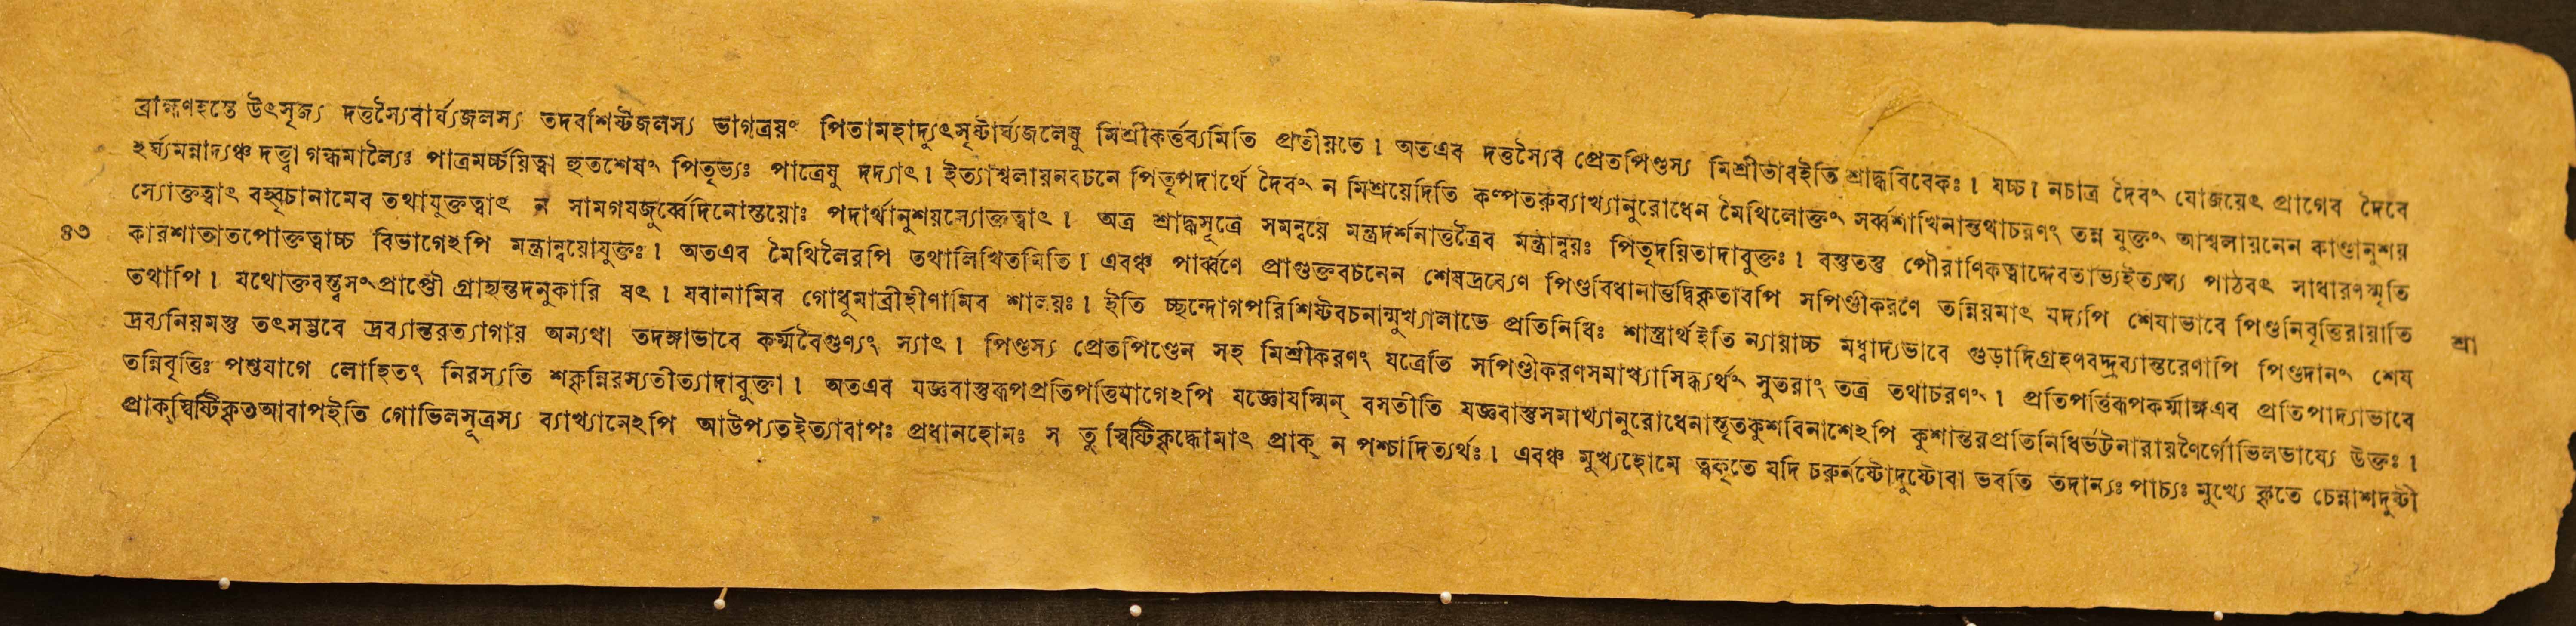 ব্রাহ্মণহস্তে উৎসৃজ্য দত্তস্যৈবার্ঘ্যজলস্য তদবশিষ্টজলস্য ভাগত্রয়ং পিতামহাদ্যুৎসৃষ্টার্ঘ্যজলেষু মিশ্রীকর্ত্তব্যমিতি প্রতীয়তে। অতএব দত্তস্যৈব প্রেতপিণ্ডস্য মিশ্রীভাবইতি শ্রাদ্ধবিবেকঃ। যচ্চ। নচাত্র দৈবং যোজয়েৎ প্রাগেব দৈবে
ঽর্ঘ্যমন্নাদ্যঞ্চ দত্ত্বা গন্ধমাল্যৈঃ পাত্রমর্চ্চয়িত্বা হুতশেষং পিতৃভ্যঃ পাত্রেষু দদ্যাৎ। ইত্যাশ্বলায়নবচনে পিতৃপদার্থে দৈবং ন মিশ্রয়েদিতি কল্পতরুব্যাখ্যানুরোধেন মৈথিলোক্তং সর্ব্বশাখিনান্তথাচরণং তন্ন যুক্তং আশ্বলায়নেন কাণ্ডানুশয়
স্যোক্তত্বাৎ বহ্বৃচানামেব তথাযুক্তত্বাৎ ন সামগযজুর্ব্বেদিনোস্তয়োঃ পদার্থানুশয়স্যোক্তত্বাৎ। অত্র শ্রাদ্ধসূত্রে সমন্বয়ে মন্ত্রদর্শনাত্তত্রৈব মন্ত্রান্বয়ঃ পিতৃদয়িতাদাবুক্তঃ। বস্তুতস্তু পৌরাণিকত্বাদ্দেবতাভ্যইত্যস্য পাঠবৎ সাধারণস্মৃতি
৪৩ কারশাতাতপোক্তত্বাচ্চ বিভাগেঽপি মন্ত্রান্বয়োযুক্তঃ। অতএব মৈথিলৈরপি তথালিখিতমিতি। এবঞ্চ পার্ব্বণে প্রাগুক্তবচনেন শেষদ্রব্যেণ পিণ্ডবিধানাত্তদ্বিকৃতাবপি সপিণ্ডীকরণে তন্নিয়মাৎ যদ্যপি শেষাভাবে পিণ্ডনিবৃত্তিরায়াতি
তথাপি। যথোক্তবস্ত্বসংপ্রাপ্তৌ গ্রাহ্যন্তদনুকারি যৎ। যবানামিব গোধূমাব্রীহীণামিব শালয়ঃ। ইতি চ্ছন্দোগপরিশিষ্টবচনান্মুখ্যালাভে প্রতিনিধিঃ শাস্ত্রার্থইতি ন্যায়াচ্চ মধ্বাদ্যভাবে গুড়াদিগ্রহণবদ্দ্রব্যান্তরেণাপি পিণ্ডদানং শেষ শ্রা
দ্রব্যনিয়মস্তু তৎসম্ভবে দ্রব্যান্তরত্যাগায় অন্যথা তদঙ্গাভাবে কর্ম্মবৈগুণ্যং স্যাৎ। পিণ্ডস্য প্রেতপিণ্ডেন সহ মিশ্রীকরণং যত্রেতি সপিণ্ডীকরণসমাখ্যাসিদ্ধ্যর্থং সুতরাং তত্র তথাচরণং। প্রতিপত্তিরূপকর্ম্মাঙ্গএব প্রতিপাদ্যাভাবে
তন্নিবৃত্তিঃ পশুযাগে লোহিতং নিরস্যতি শকৃন্নিরস্যতীত্যাদাবুক্তা। অতএব যজ্ঞবাস্তুরূপপ্রতিপত্তিযাগেঽপি যজ্ঞোযস্মিন্ বসতীতি যজ্ঞবাস্তুসমাখ্যানুরোধেনাস্তৃতকুশবিনাশেঽপি কুশান্তরপ্রতিনিধির্ভট্টনারায়ণৈর্গোভিলভাষ্যে উক্তঃ।
প্রাক্স্বিষ্টিকৃতআবাপইতি গোভিলসূত্রস্য ব্যাখ্যানেঽপি আউপ্যতইত্যাবাপঃ প্রধানহোমঃ স তু স্বিষ্টিকৃদ্ধোমাৎ প্রাক্ ন পশ্চাদিত্যর্থঃ। এবঞ্চ মুখ্যহোমে ত্বকৃতে যদি চরুর্নষ্টোদুষ্টোবা ভবতি তদান্যঃ পাচ্যঃ মুখ্যে কৃতে চেন্নাশদুষ্টী